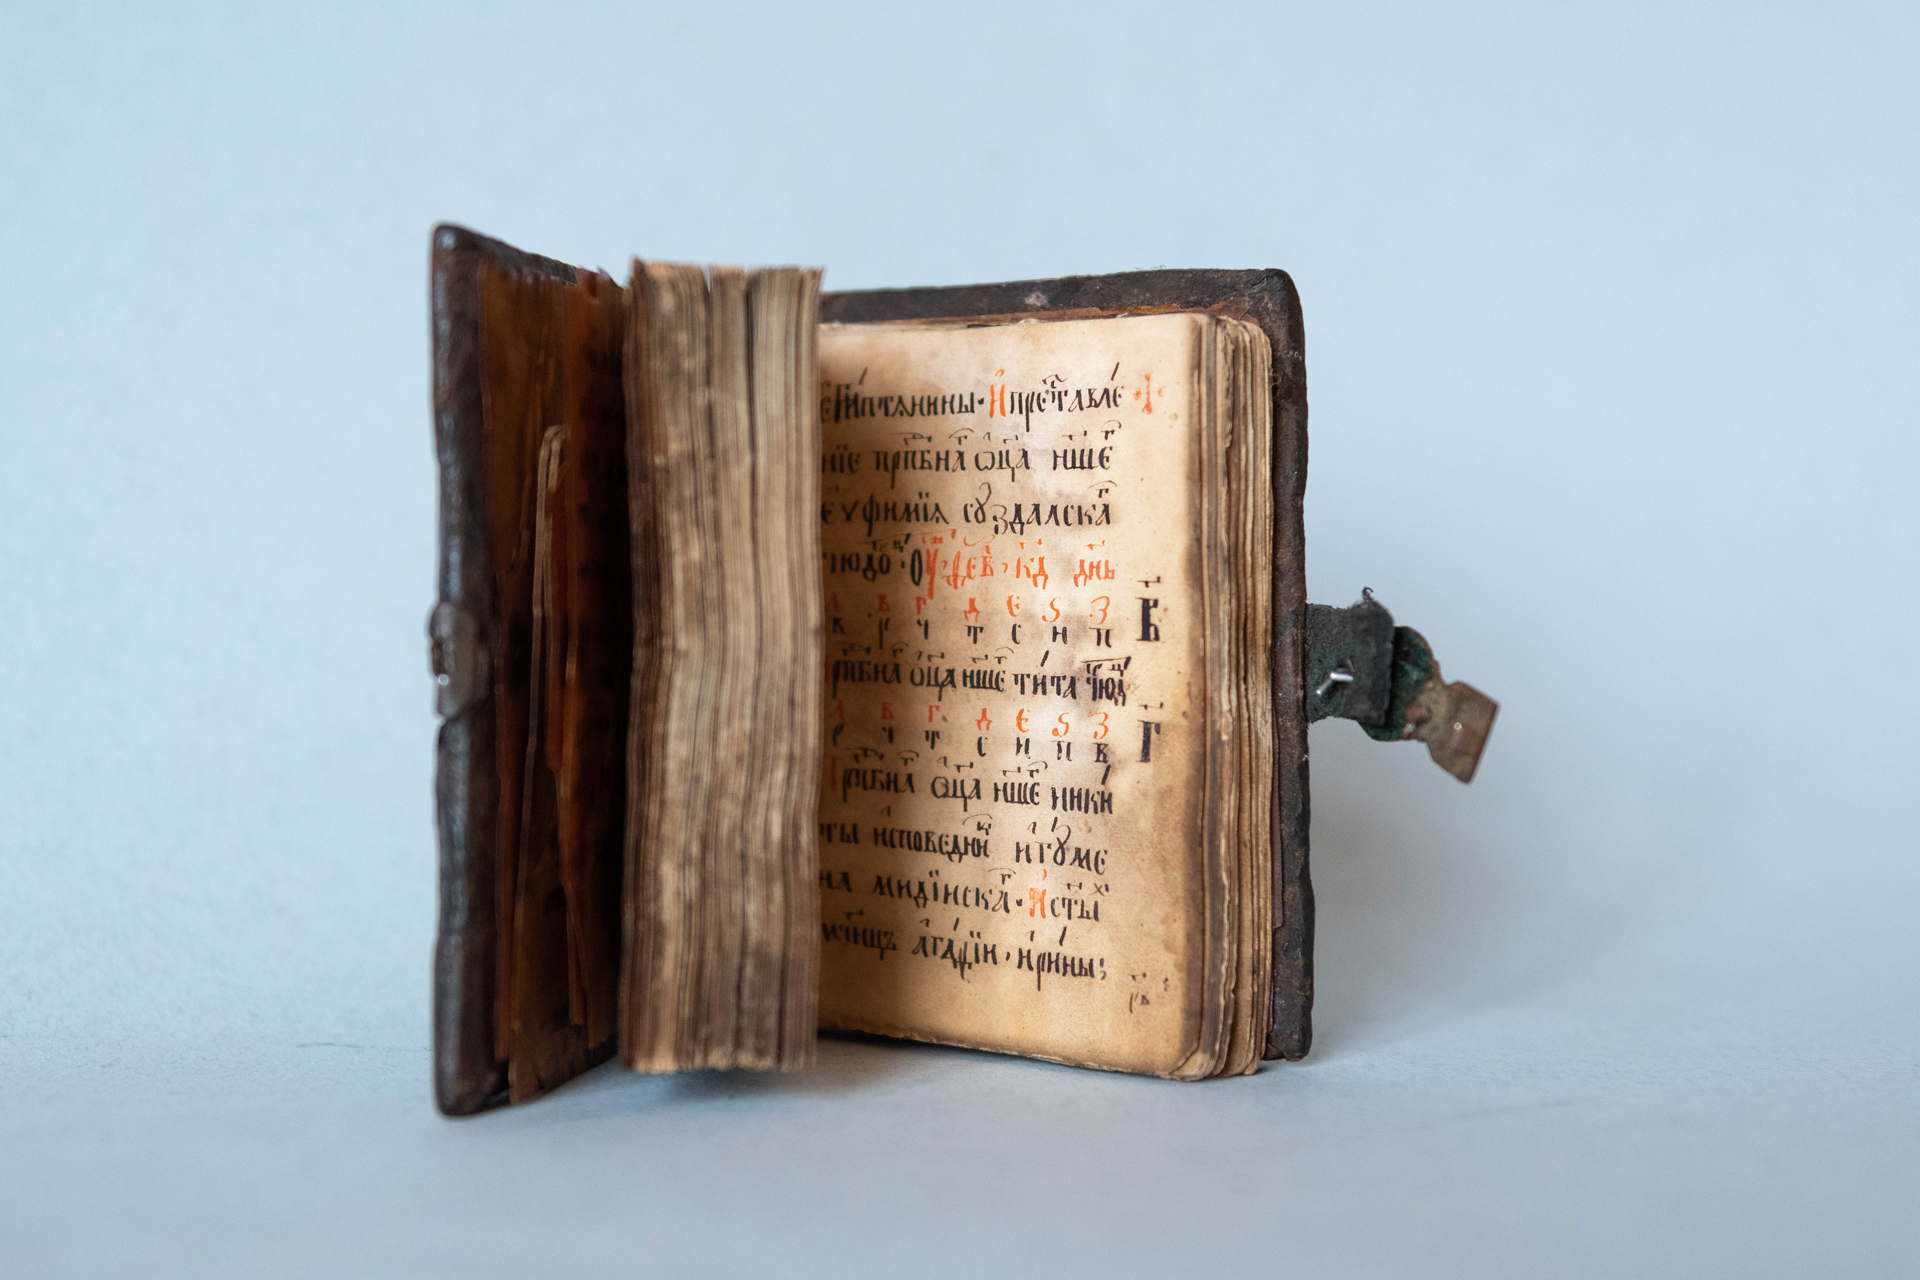 егѵптѧнины · И преставле
нїе прпбна ѿца нше
еуфимїѧ сꙋздалска
чюдо · Оу дев · кд днь
а в г д е ѕ з
в р ч т с н п В
прпбна ѿца нше тита чюд
а в г д е ѕ з
р ч т с н п в Г
прпбна ѿца нше ники
ты исповедни игꙋме
на мидїиска · И сты
мчнцъ агафїи · ирины: